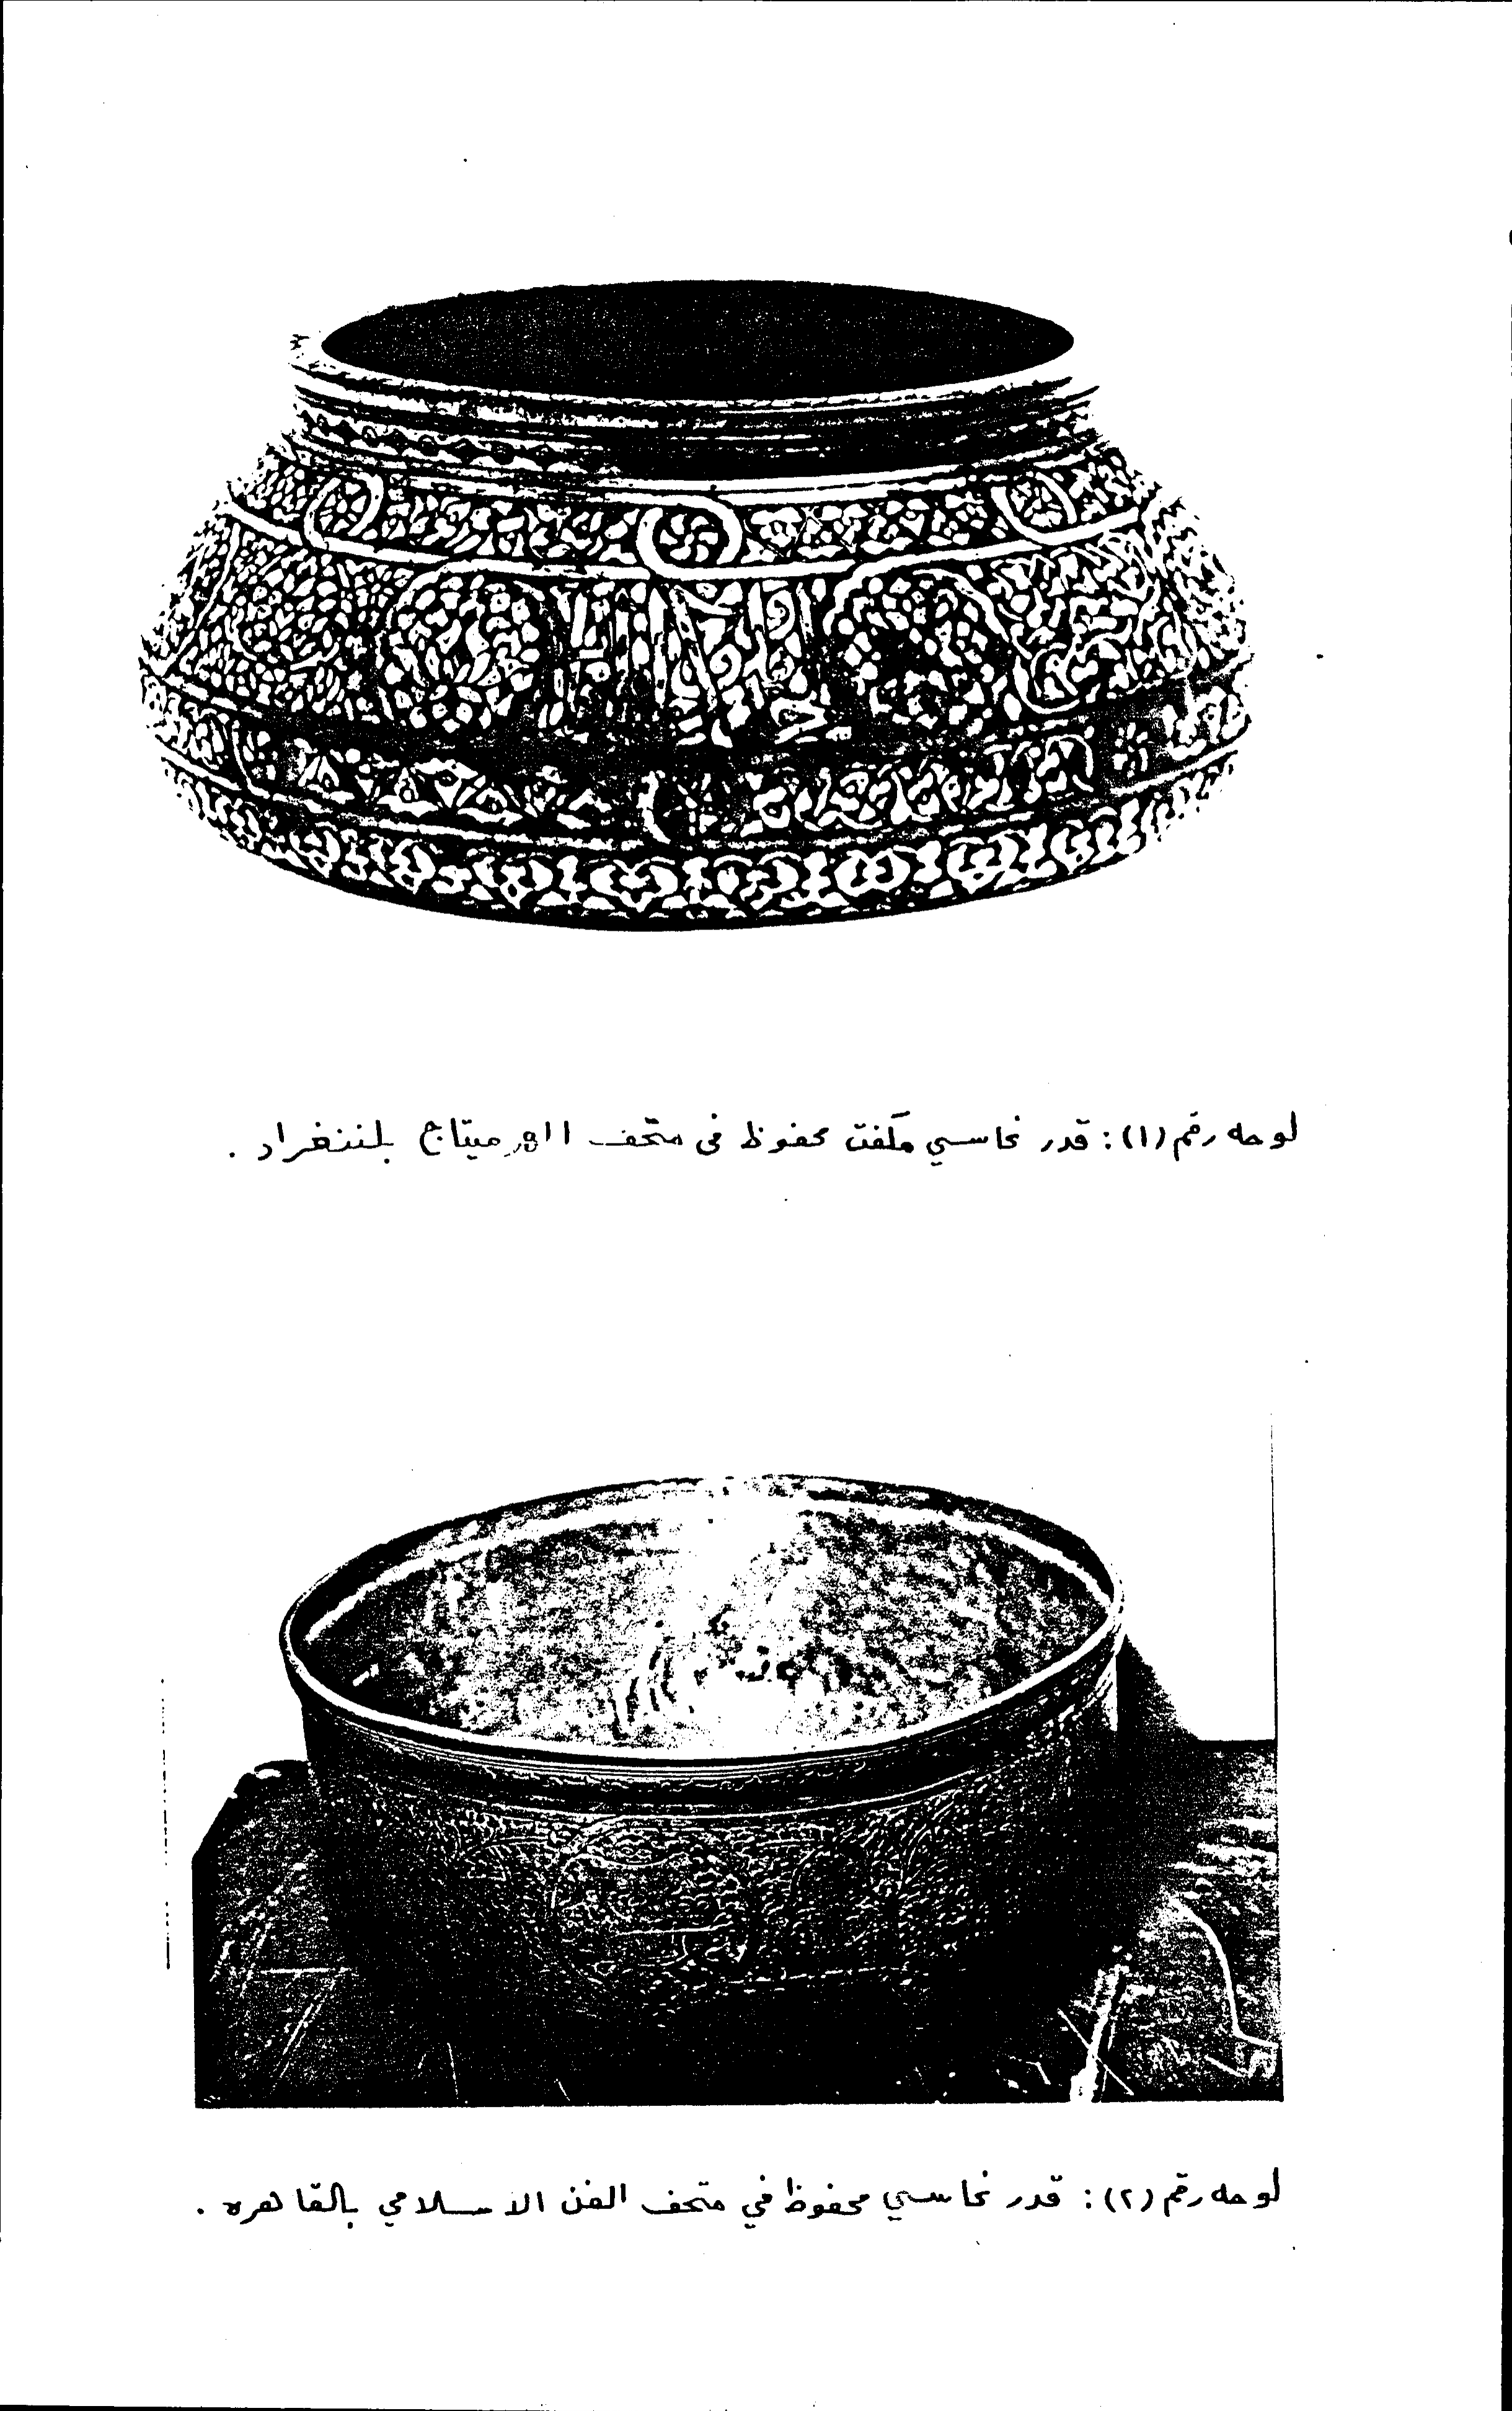 لوحه رقم (١) : قدر نحاسي مكفت محفوظ في متحف الهرميتاج بلننغراد .
لوحه رقم (٢) : قدر نحاسي محفوظ في متحف الفن الاسلامي بالقاهره .